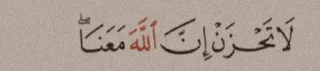 لَا تَحْزَنْ إِنَّ ٱللَّهَ مَعَنَاۖ